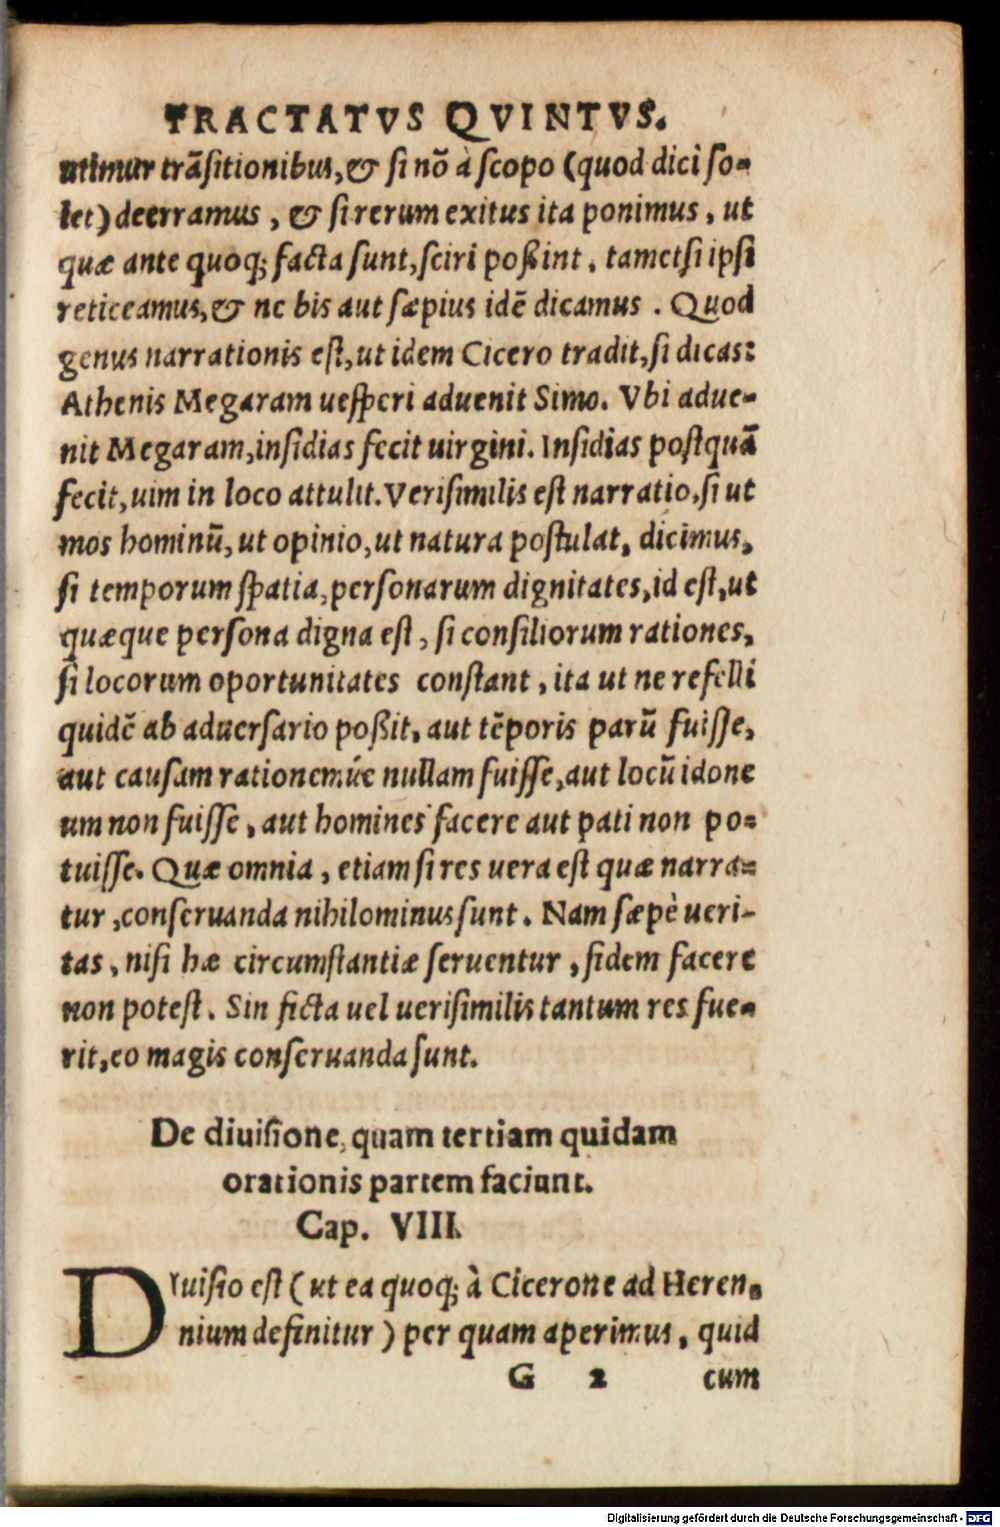 TRACTATVS QVINTVS.
utimur trãsitionibus, & si nõ à scopo (quod dici so-
let) deerramus, & si rerum exitus ita ponimus, ut
quæ ante quoq; facta sunt, sciri poßint, tametsi ipsi
reticeamus, & ne bis aut sæpius idẽ dicamus. Quod
genus narrationis est, ut idem Cicero tradit, si dicas:
Athenis Megaram uesperi aduenit Simo. Vbi adue-
nit Megaram, insidias fecit uirgini. Insidias postquã
fecit, uim in loco attulit. Verisimilis est narratio, si ut
mos hominũ, ut opinio, ut natura postulat, dicimus,
si temporum spatia, personarum dignitates, id est, ut
quæque persona digna est, si consiliorum rationes,
si locorum oportunitates constant, ita ut ne refelli
quidẽ ab aduersario poßit, aut tẽporis parũ fuisse,
aut causam rationemúe nullam fuisse, aut locũ idone
um non fuisse, aut homines facere aut pati non po-
tuisse. Quæ omnia, etiam si res uera est quæ narra-
tur, conseruanda nihilominus sunt. Nam sæpè ueri-
tas, nisi hæ circumstantiæ seruentur, fidem facere
non potest. Sin ficta uel uerisimilis tantum res fue-
rit, eo magis conseruanda sunt.
De diuisione, quam tertiam quidam
orationis partem faciunt.
Cap. VIII.
DIuisio est (ut ea quoq; à Cicerone ad Heren-
nium definitur) per quam aperimus, quid
G 2 cum
Digitalisierung gefördert durch die Deutsche Forschungsgemeinschaft - DFG